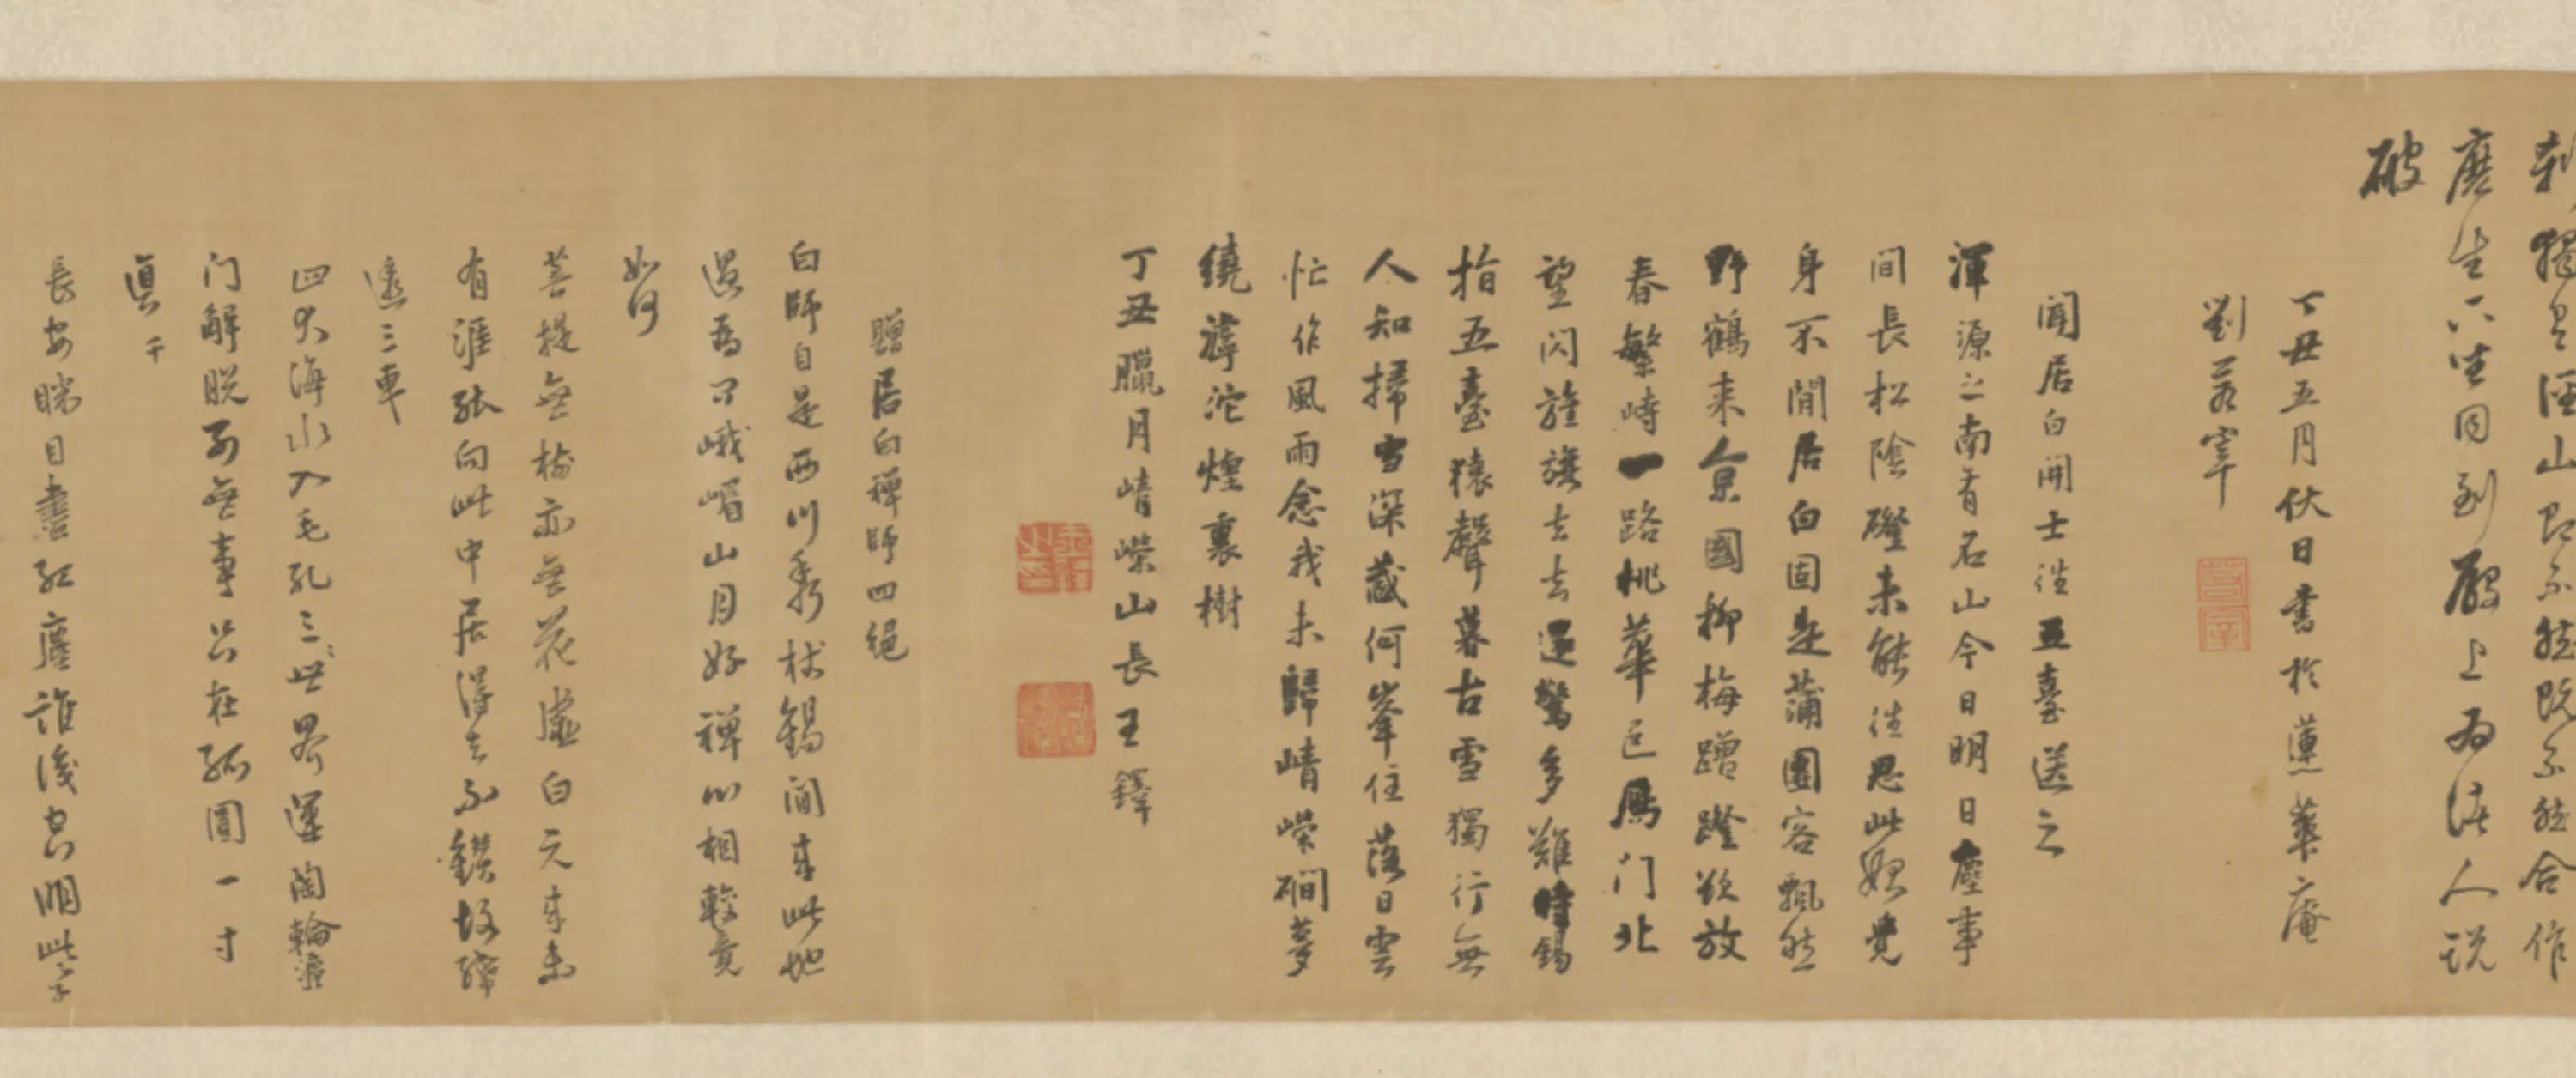 磨生六坐同到殿上為法人說
破
丁丑五月伏日書於薰華庵
劉若宰
聞居白開士往五臺送之
渾源之南有石山今日明日塵事
間長松陰磴未能住思此媿覺
身不閒居白固是蒲團客飄然
野鶴来京國柳梅蹭蹬欲放
春繁峙一路桃華邑鴈门北
望閃旌旗去去還驚多難時錫
指五臺猿聲暮古雪獨行無
人知掃雪深蔵何峯住落日雲
忙作風雨念我未歸崝嶸磵夢
繞滹沱煙裏樹
丁丑臘月崝嶸山長王鐸
贈居白禪師四絕
白師自是西川秀杖錫間來此地
過為口峨嵋山月好禪心相較竟
如何
菩提無樹亦無花虛白元來未
有涯孤向此中居得去不
遠三車
四大海水入毛孔三世界運陶輪
门解脫不無事只在孤圓一寸
真
長安眯目盡紅塵誰淺明此